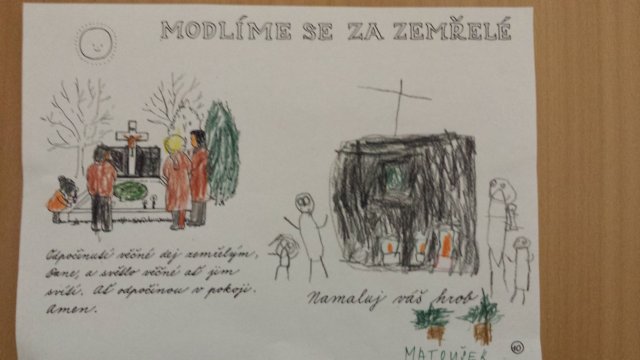 MODLÍME SE ZA ZEMŘELÉ
Odpočinutí věčné dej zemřelým,
Pane, a světlo věčné ať jim
svítí. Ať odpočinou v pokoji.
Amen.
Namaluj váš hrob
MATOUŠEK